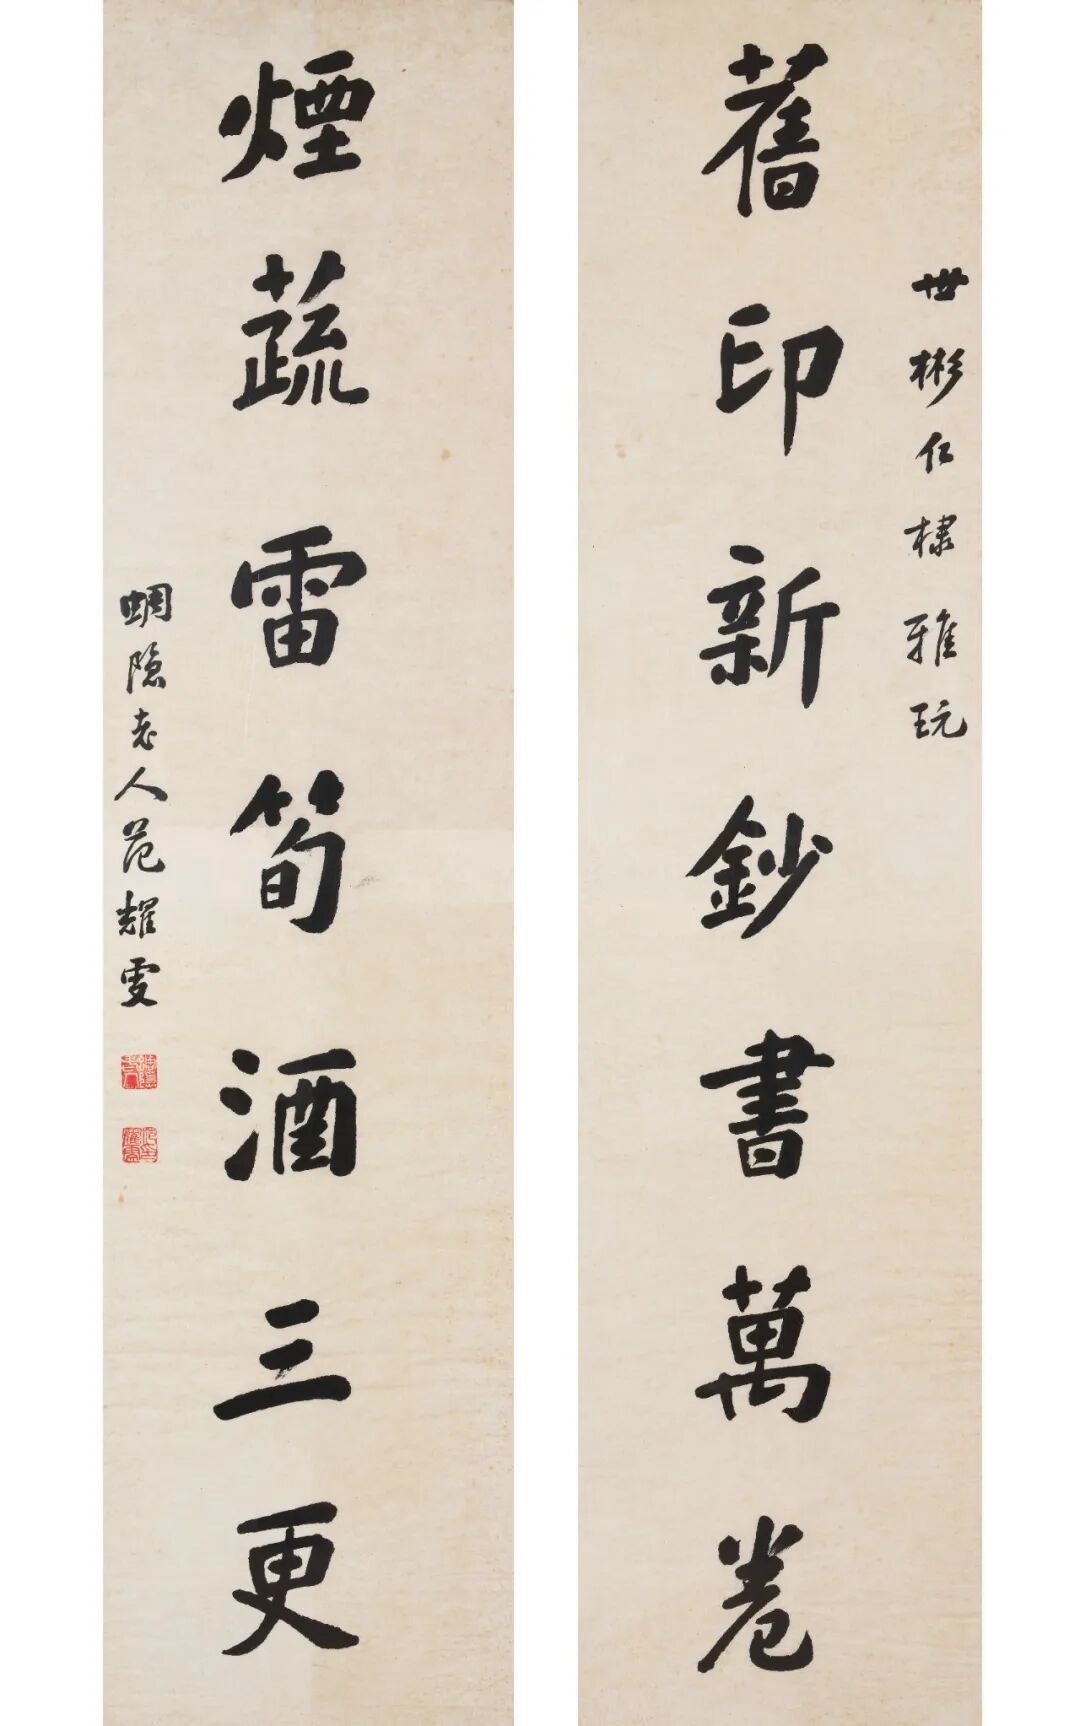 舊印新鈔書萬卷
世彬仁棣雅玩
煙蔬雷筍酒三更
蜩隐老人范耀雯